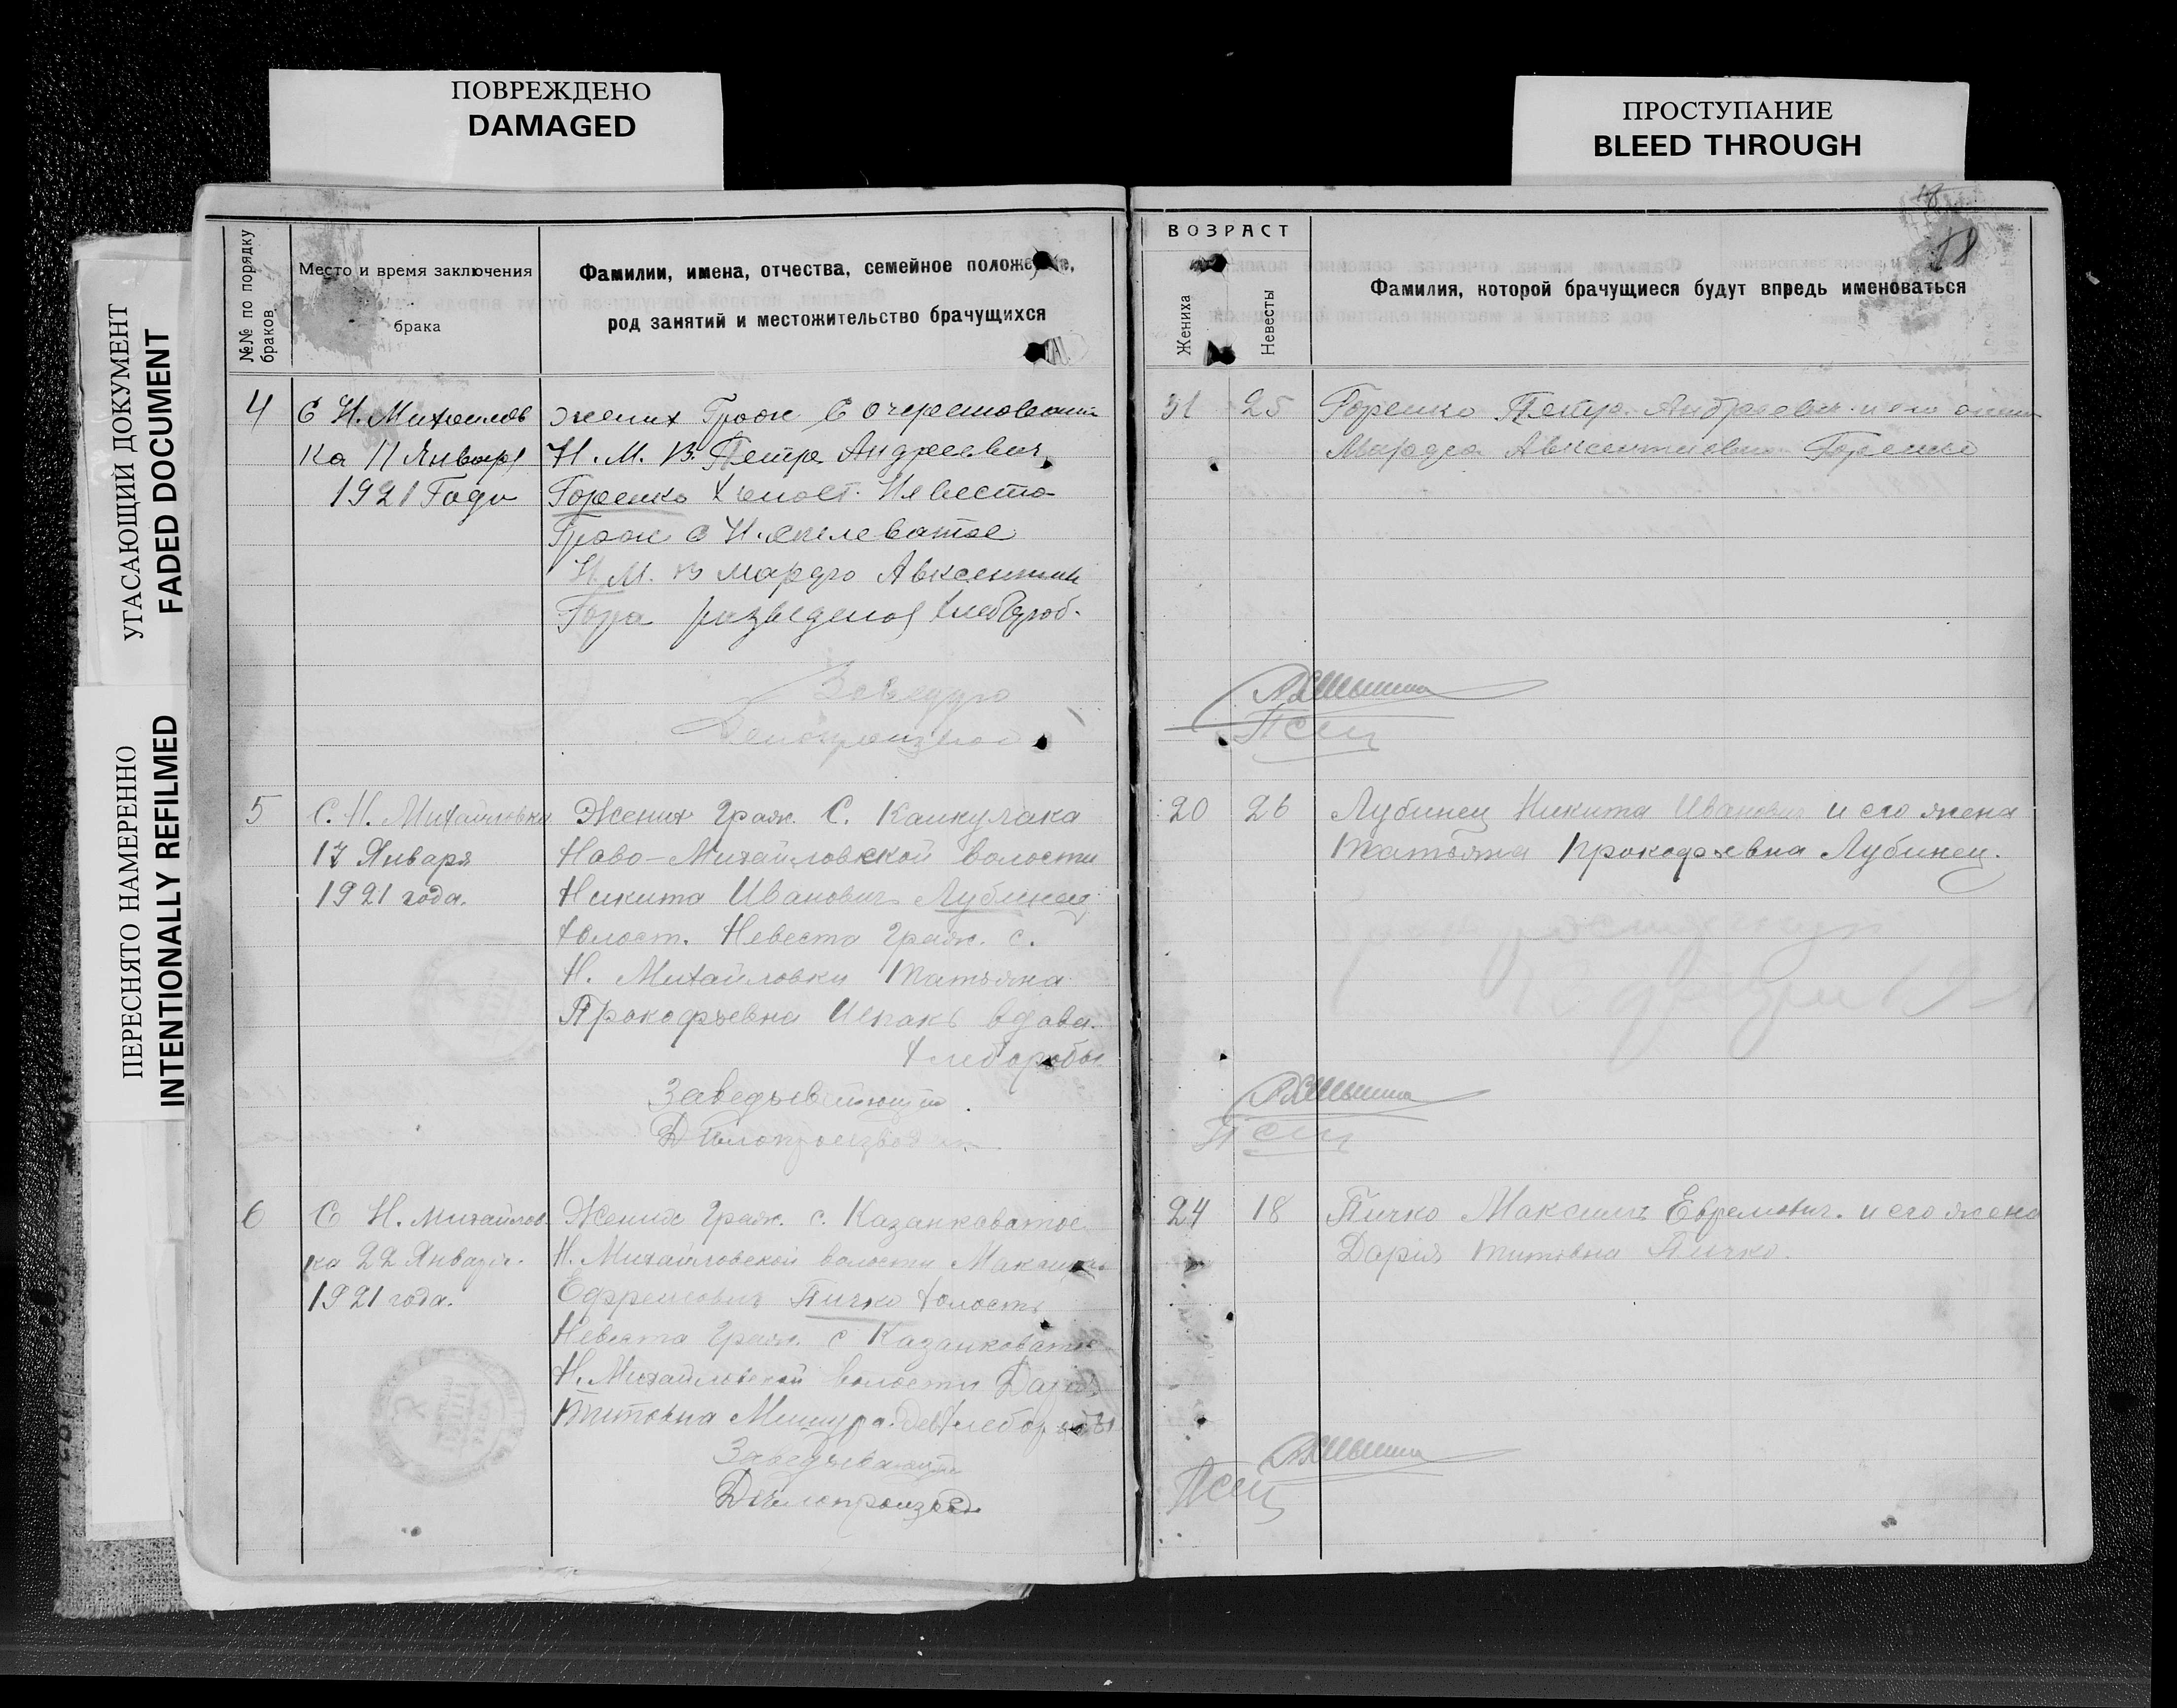 ПОВРЕЖДЕНО
DAMAGED
ПРОСТУПАНИЕ
BLEED THROUGH
УГАСАЮЩИЙ ДОКУМЕНТ
FADED DOCUMENT
ПЕРЕСНЯТО НАМЕРЕННО
INTENTIONALLY REFILMED
№№ по порядку браков
Место и время заключения
брака
Фамилии, имена, отчества, семейное положение,
род занятий и местожительство брачущихся
ВОЗРАСТ
Жениха
Невесты
Фамилия, которой брачущиеся будут впредь именоваться
18
4
С Н. Михайлов
ка 11 Января
1921 Года
жених Граж С
Н. М. В. Петр Андреевич
Горенко холост. Невеста
Граж С
Н. М. В Марфа Авксентии
Гора разведеная хлебороб.
31
25
Горенко Петр Андреевич и его жена
Марфа Авксентиевна Горенко
5
С. Н. Михайловка
17 Января
1921 года.
Жених Граж. С. Канкулака
Ново-Михайловской волости
Никита Иванович Лубинец
холост. Невеста Граж. с.
Н. Михайловки Татьяна
Прокофьевна вдова.
хлеборобы
Заведывающий
Делопроизвод
20
26
Лубинец Никита Иванович и его жена
Татьяна Прокофьевна Лубинец.
6
С Н. Михайлов
ка 22 Января.
1921 года.
Жених Граж. с. Казанковатое
Н. Михайловской волости Максим
Ефремович Пичко холость
Невеста Граж. с Казанковатое
Н. Михайловской волости Дария
Титовна Мишура. дев хлеборобы
Заведывающий
Делопроизвод
24
18
Пичко Максимъ Ефремович. и его жена
Дария Титовна Пичко.